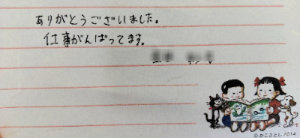 ありがとうございました。
仕事がんばってます。